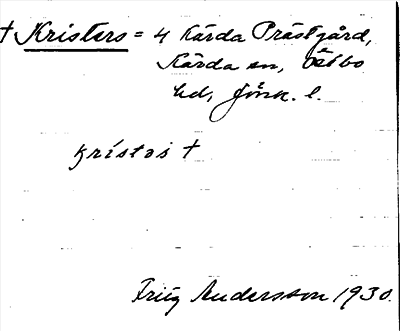 † Kristers = 4 Kärda Prästgård,
Kärda sn, Östbo
hd, Jönk. l.
kristas †
Friig Andersson 1930.